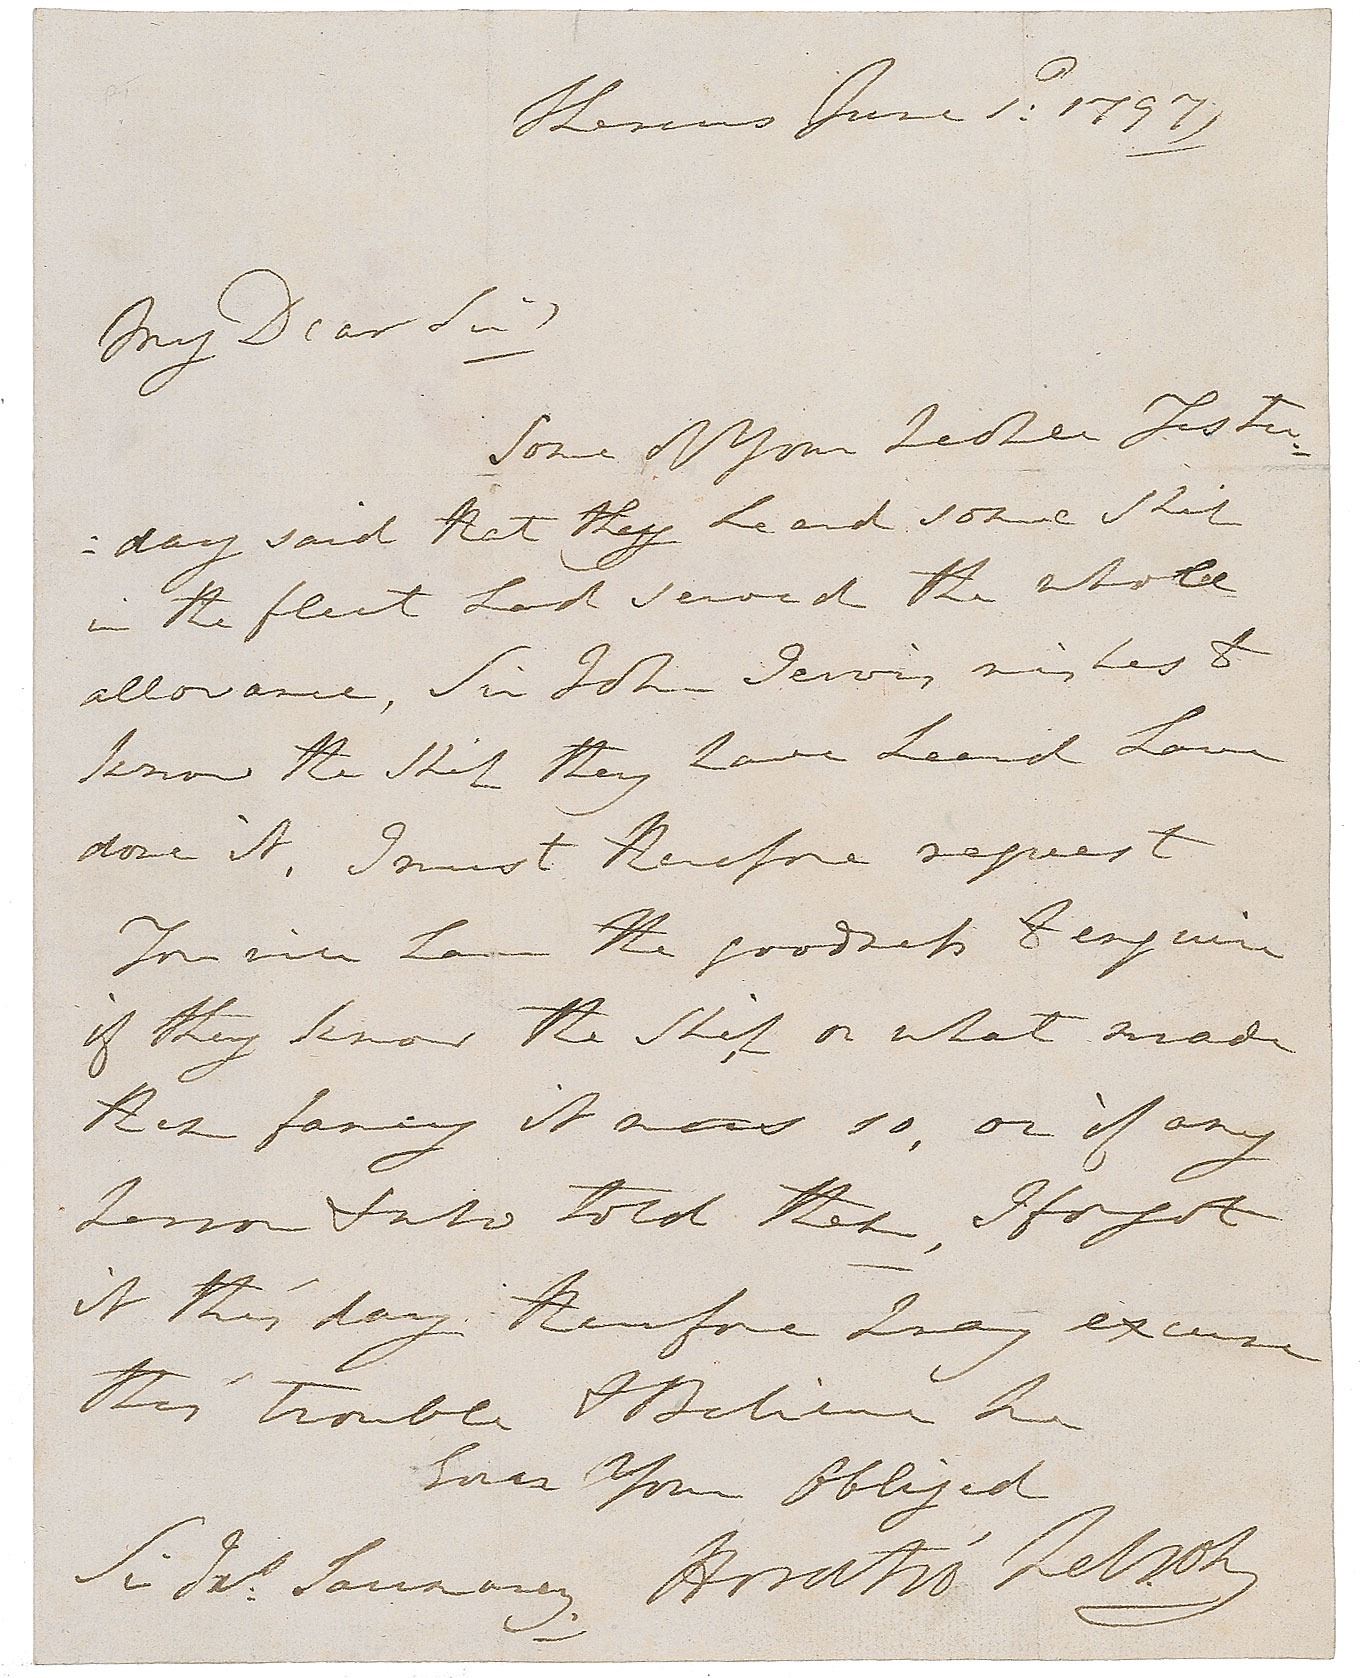 Theseus June 1st: 1797,
My Dear Sir,
Some of Your people Yester=
=day said that they heard some ship
in the fleet had served the whole
allowance, Sir John Jervis wishes to
know the ship they have heard have
done it, I must therefore request
You will have the goodness to enquire
if they know the ship, or what made
them fancy it was so, or if any
person & who told them, I forgot
it this day therefore pray excuse
this trouble & Believe me
Ever Your Obliged
Sir Jas. Saumarez. Horatio Nelson